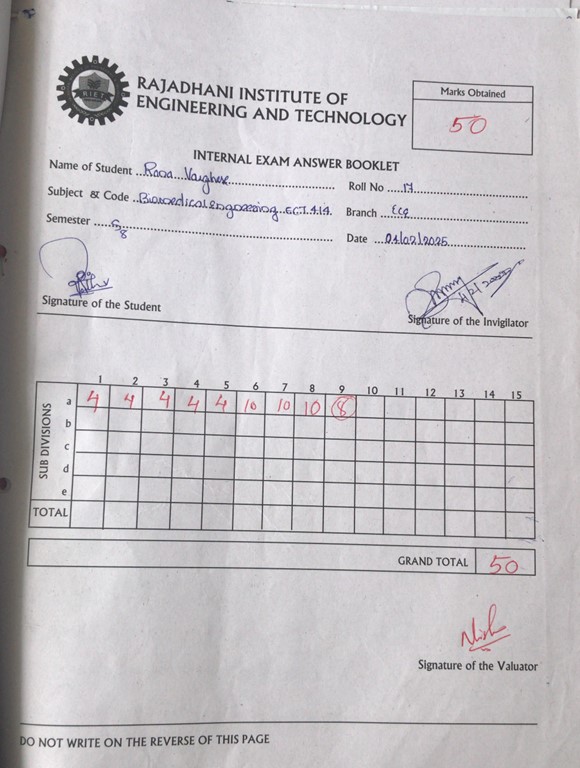 RIET
RAJADHANI INSTITUTE OF
ENGINEERING AND TECHNOLOGY
Marks Obtained
50
INTERNAL EXAM ANSWER BOOKLET
Name of Student
Roll No 17
Subject & Code Biomedical engineering ECT 414
Branch ECE
Semester S8
Date 04/02/2025
Signature of the Student
Signature of the Invigilator
1 2 3 4 5 6 7 8 9 10 11 12 13 14 15
SUB DIVISIONS
a 4 4 4 4 4 10 10 10 8
b
c
d
e
TOTAL
GRAND TOTAL 50
Signature of the Valuator
DO NOT WRITE ON THE REVERSE OF THIS PAGE